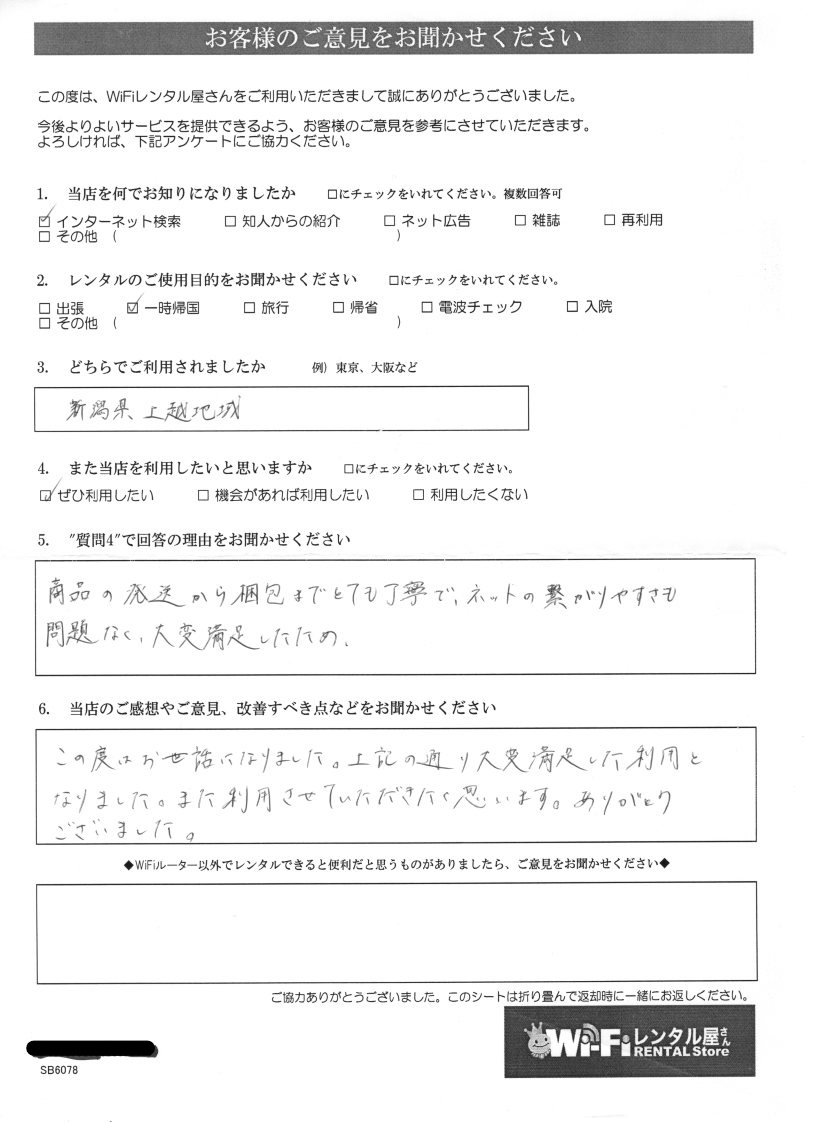 お客様のご意見をお聞かせください
この度は、WiFiレンタル屋さんをご利用いただきまして誠にありがとうございました。
今後よりよいサービスを提供できるよう、お客様のご意見を参考にさせていただきます。
よろしければ、下記アンケートにご協力ください。
1. 当店を何でお知りになりましたか □にチェックをいれてください。複数回答可
☑ インターネット検索 □ 知人からの紹介 □ ネット広告 □ 雑誌 □ 再利用
□ その他 ( )
2. レンタルのご使用目的をお聞かせください □にチェックをいれてください。
□ 出張 ☑ 一時帰国 □ 旅行 □ 帰省 □ 電波チェック □ 入院
□ その他 ( )
3. どちらでご利用されましたか 例）東京、大阪など
新潟県、上越地域
4. また当店を利用したいと思いますか □にチェックをいれてください。
☑ ぜひ利用したい □ 機会があれば利用したい □ 利用したくない
5. "質問4"で回答の理由をお聞かせください
商品の発送から梱包までとても丁寧で、ネットの繋がりやすさも
問題なく、大変満足したため、
6. 当店のご感想やご意見、改善すべき点などをお聞かせください
この度はお世話になりました。上記の通り大変満足した利用と
なりました。また利用させていただきたく思います。ありがとう
ございました。
◆WiFiルーター以外でレンタルできると便利だと思うものがありましたら、ご意見をお聞かせください◆
ご協力ありがとうございました。このシートは折り畳んで返却時に一緒にお返しください。
Wi-Fiレンタル屋さん
RENTAL Store
SB6078